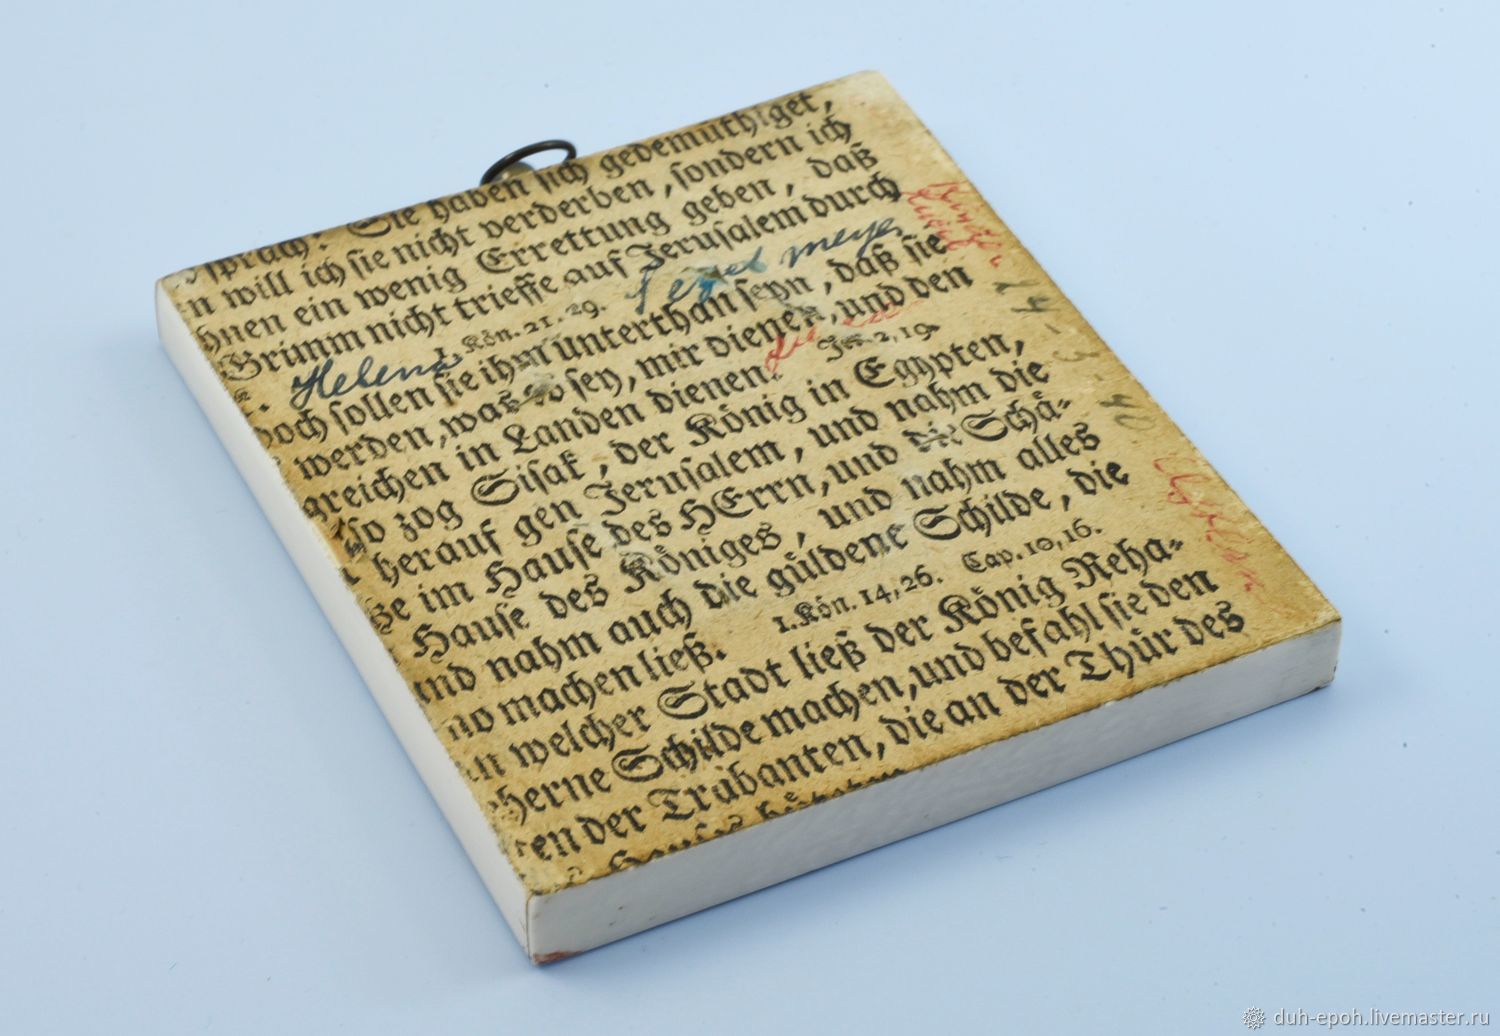 sprach: Sie haben sich gedemüthiget,
will ich sie nicht verderben, sondern ich
hnen ein wenig Errettung geben, daß
Grimm nicht trieffe auf Jerusalem durch
1. Kön. 21. 29.
Helena
meyer
doch sollen sie ihm unterthan seyn, daß sie
werden, was es sey, mir dienen, und den
greichen in Landen dienen. Jer. 2, 19.
lso zog Sisak, der König in Egypten,
herauf gen Jerusalem, und nahm die
ze im Hause des HErrn, und die Schä-
Hause des Königes, und nahm alles
und nahm auch die güldene Schilde, die
mo machen ließ. 1. Kön. 14, 26. Cap. 10, 16.
n welcher Stadt ließ der König Reha-
herne Schilde machen, und befahl sie den
en der Trabanten, die an der Thür des
Hauses
duh-epoh.livemaster.ru